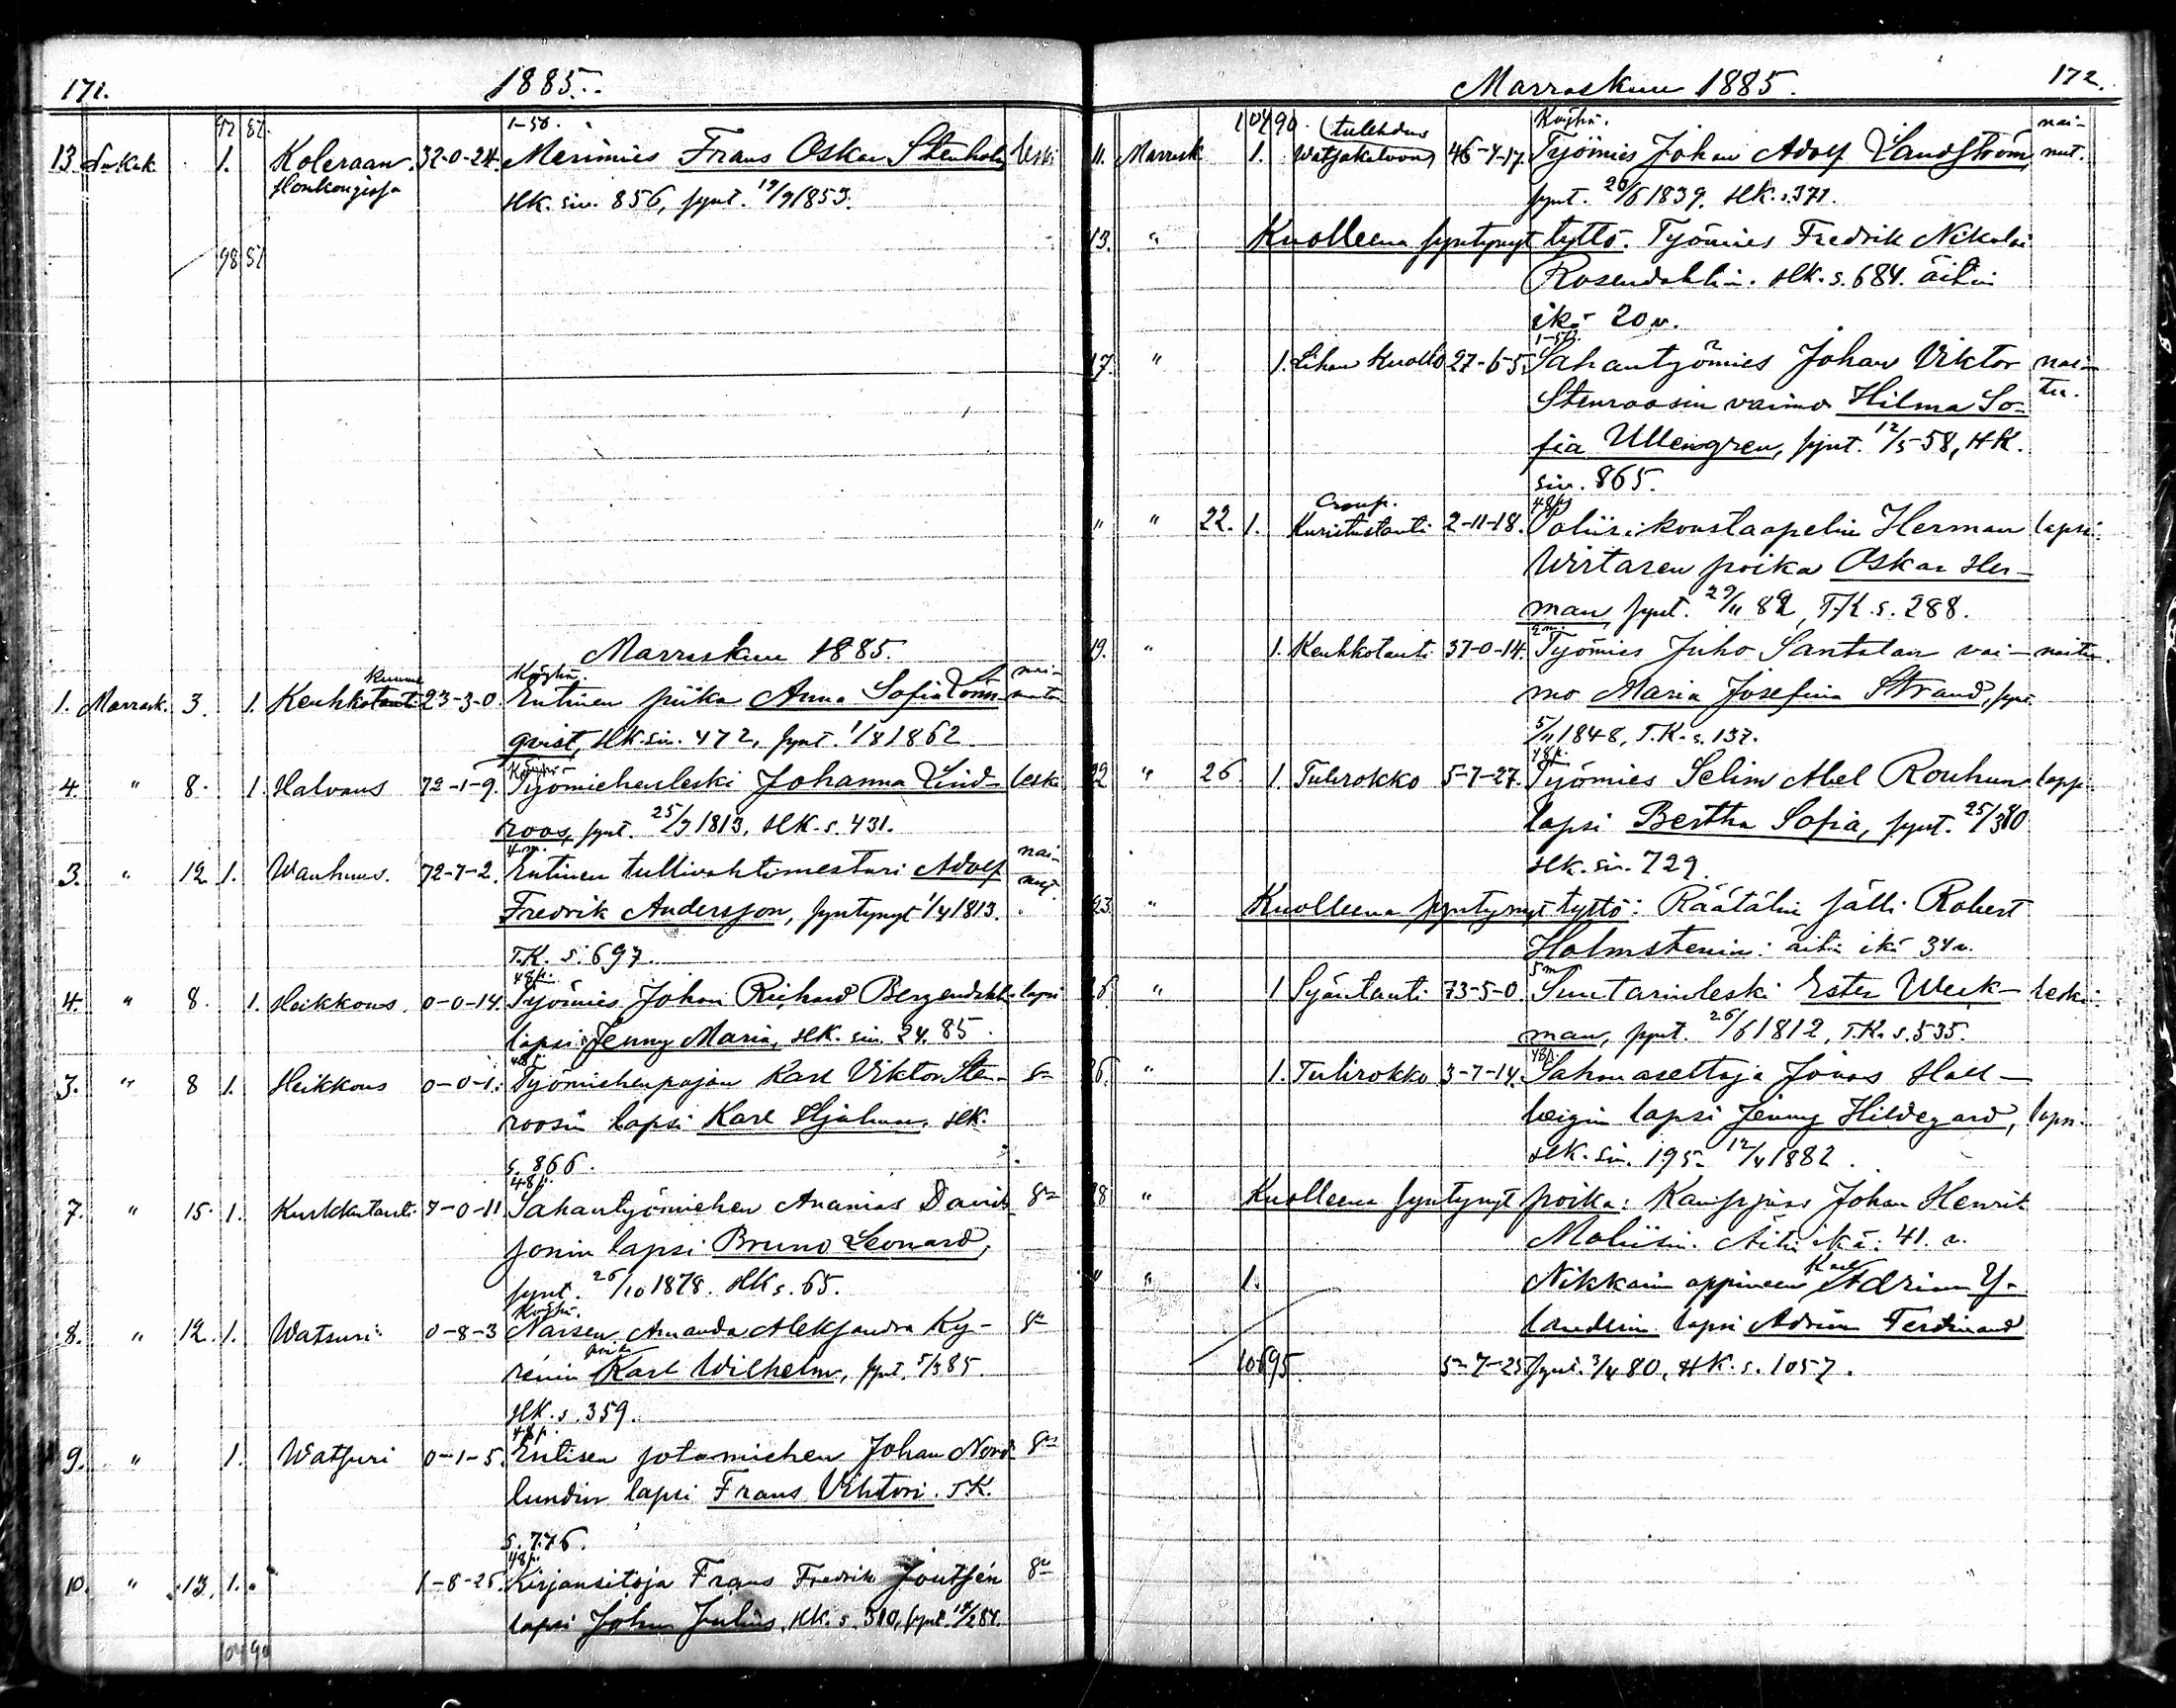 171. 1885.
97 87. 1-50.
13. Lokak. 1. Koleraan. 32-0-24. Merimies Frans Oskar Stenholm leski
Honkongissa HK. siv. 856, synt. 19/9 1853.
98 87
Marraskuu 1885.
Köyhä. nai-
1. Marrask. 3. 1. Keuhko 23-3-0. Entinen piika Anna Sofia Lönn- maton
qvist, HK. siv. 472, synt. 1/8 1862
Köyhä
4. " 8. 1. Halvaus 72-1-9. Työmiehenleski Johanna Lind- leski
roos, synt. 25/9 1813, HK. s. 431.
4.m. nai-
3. " 12 1. Wanhuus. 72-7-2. Entinen tullivahtimestari Adolf nut.
Fredrik Andersson, syntynyt 1/4 1813.
T.K. s. 697.
48p.
4. " 8. 1. Heikkous. 0-0-14. Työmies Johan Richard Bergendahl lapsi
lapsi Jenny Maria, HK. siv. 24. 85.
48p.
3. " 8 1. Heikkous 0-0-1. Työmiehenpojan Karl Viktor Sten-
roosin lapsi Karl Hjalmar. HK.
s. 866.
48p.
7. " 15. 1. Kurkkutauti 7-0-11 Sahantyömiehen Ananias David-
sonin lapsi Bruno Leonard,
synt. 26/10 1878. HK s. 65.
Köyhä.
8. " 12. 1. Watsuri 0-8-3 Naisen Amanda Aleksandra Ky-
poika
renin Karl Wilhelm, synt. 5/3 85.
HK. s. 359.
48p.
9. " 1. Watsuri 0-1-5. Entisen sotamiehen Johan Nord-
lundin lapsi Frans Vihtori. T.K.
s. 776.
48p.
10. " 13. 1. 1-8-25. Kirjansitoja Frans Fredrik Joutsén
lapsi Johan Julius, HK. s. 310, synt. 18/2 84.
104 90
Marraskuu 1885. 172.
104 90. (tulehdus Köyhä. nai-
11. Marrask 1. Watsakalvon) 46-4-17. Työmies Johan Adolf Sandström, nut.
synt. 20/6 1839. HK. s. 371.
13. " Kuolleena syntynyt tyttö. Työmies Fredrik Nikolai
Rosendahlin. HK. s. 684. äitin
ikä 20 v.
17. " 1. Lihan kuolio 27-6-5. Sahantyömies Johan Viktor nai-
Stenroosin vaimo Hilma So- tu.
fia Ullengren, synt. 12/5-58, HK.
siv. 865.
Croup. 48p
" " 22. 1. Kuristustauti 2-11-18. Poliisikonstaapelin Herman lapsi.
Wirtasen poika Oskar Her-
man, synt. 29/11 82, T.K. s. 288.
2m.
19. " 1. Keuhkotauti 37-0-14. Työmies Juho Santalan vai- naitu.
mo Maria Josefina Strand, synt.
5/11 1848, T.K. s. 137.
48p.
22 " 26. 1. Tulirokko 5-7-27. Työmies Selim Abel Rouhun laps.
lapsi Bertha Sofia, synt. 25/3 80
HK. siv. 729.
23. " Kuolleena syntynyt tyttö: Räätälin sälli Robert
Holmstenin: äitin ikä 34 v.
5m
26. " 1 Syäntauti 73-5-0 Suutarinleski Ester Weck- leski.
man, synt. 26/6 1812, T.K. s. 535.
48p.
26. " 1. Tulirokko 3-7-14. Sahanasettaja Jonas Hall-
bergin lapsi Jenny Hildegard, lapsi.
HK. siv. 195. 12/4 1882.
28. " Kuolleena syntynyt poika: Kauppias Johan Henrik
Moliisin. Äitin ikä: 41. v.
Karl
" " 1. Nikkarin oppineen Adrian Y-
landerin lapsi Adrian Ferdinand
106 95. 5-7-25 synt. 3/4 80, HK. s. 1057.